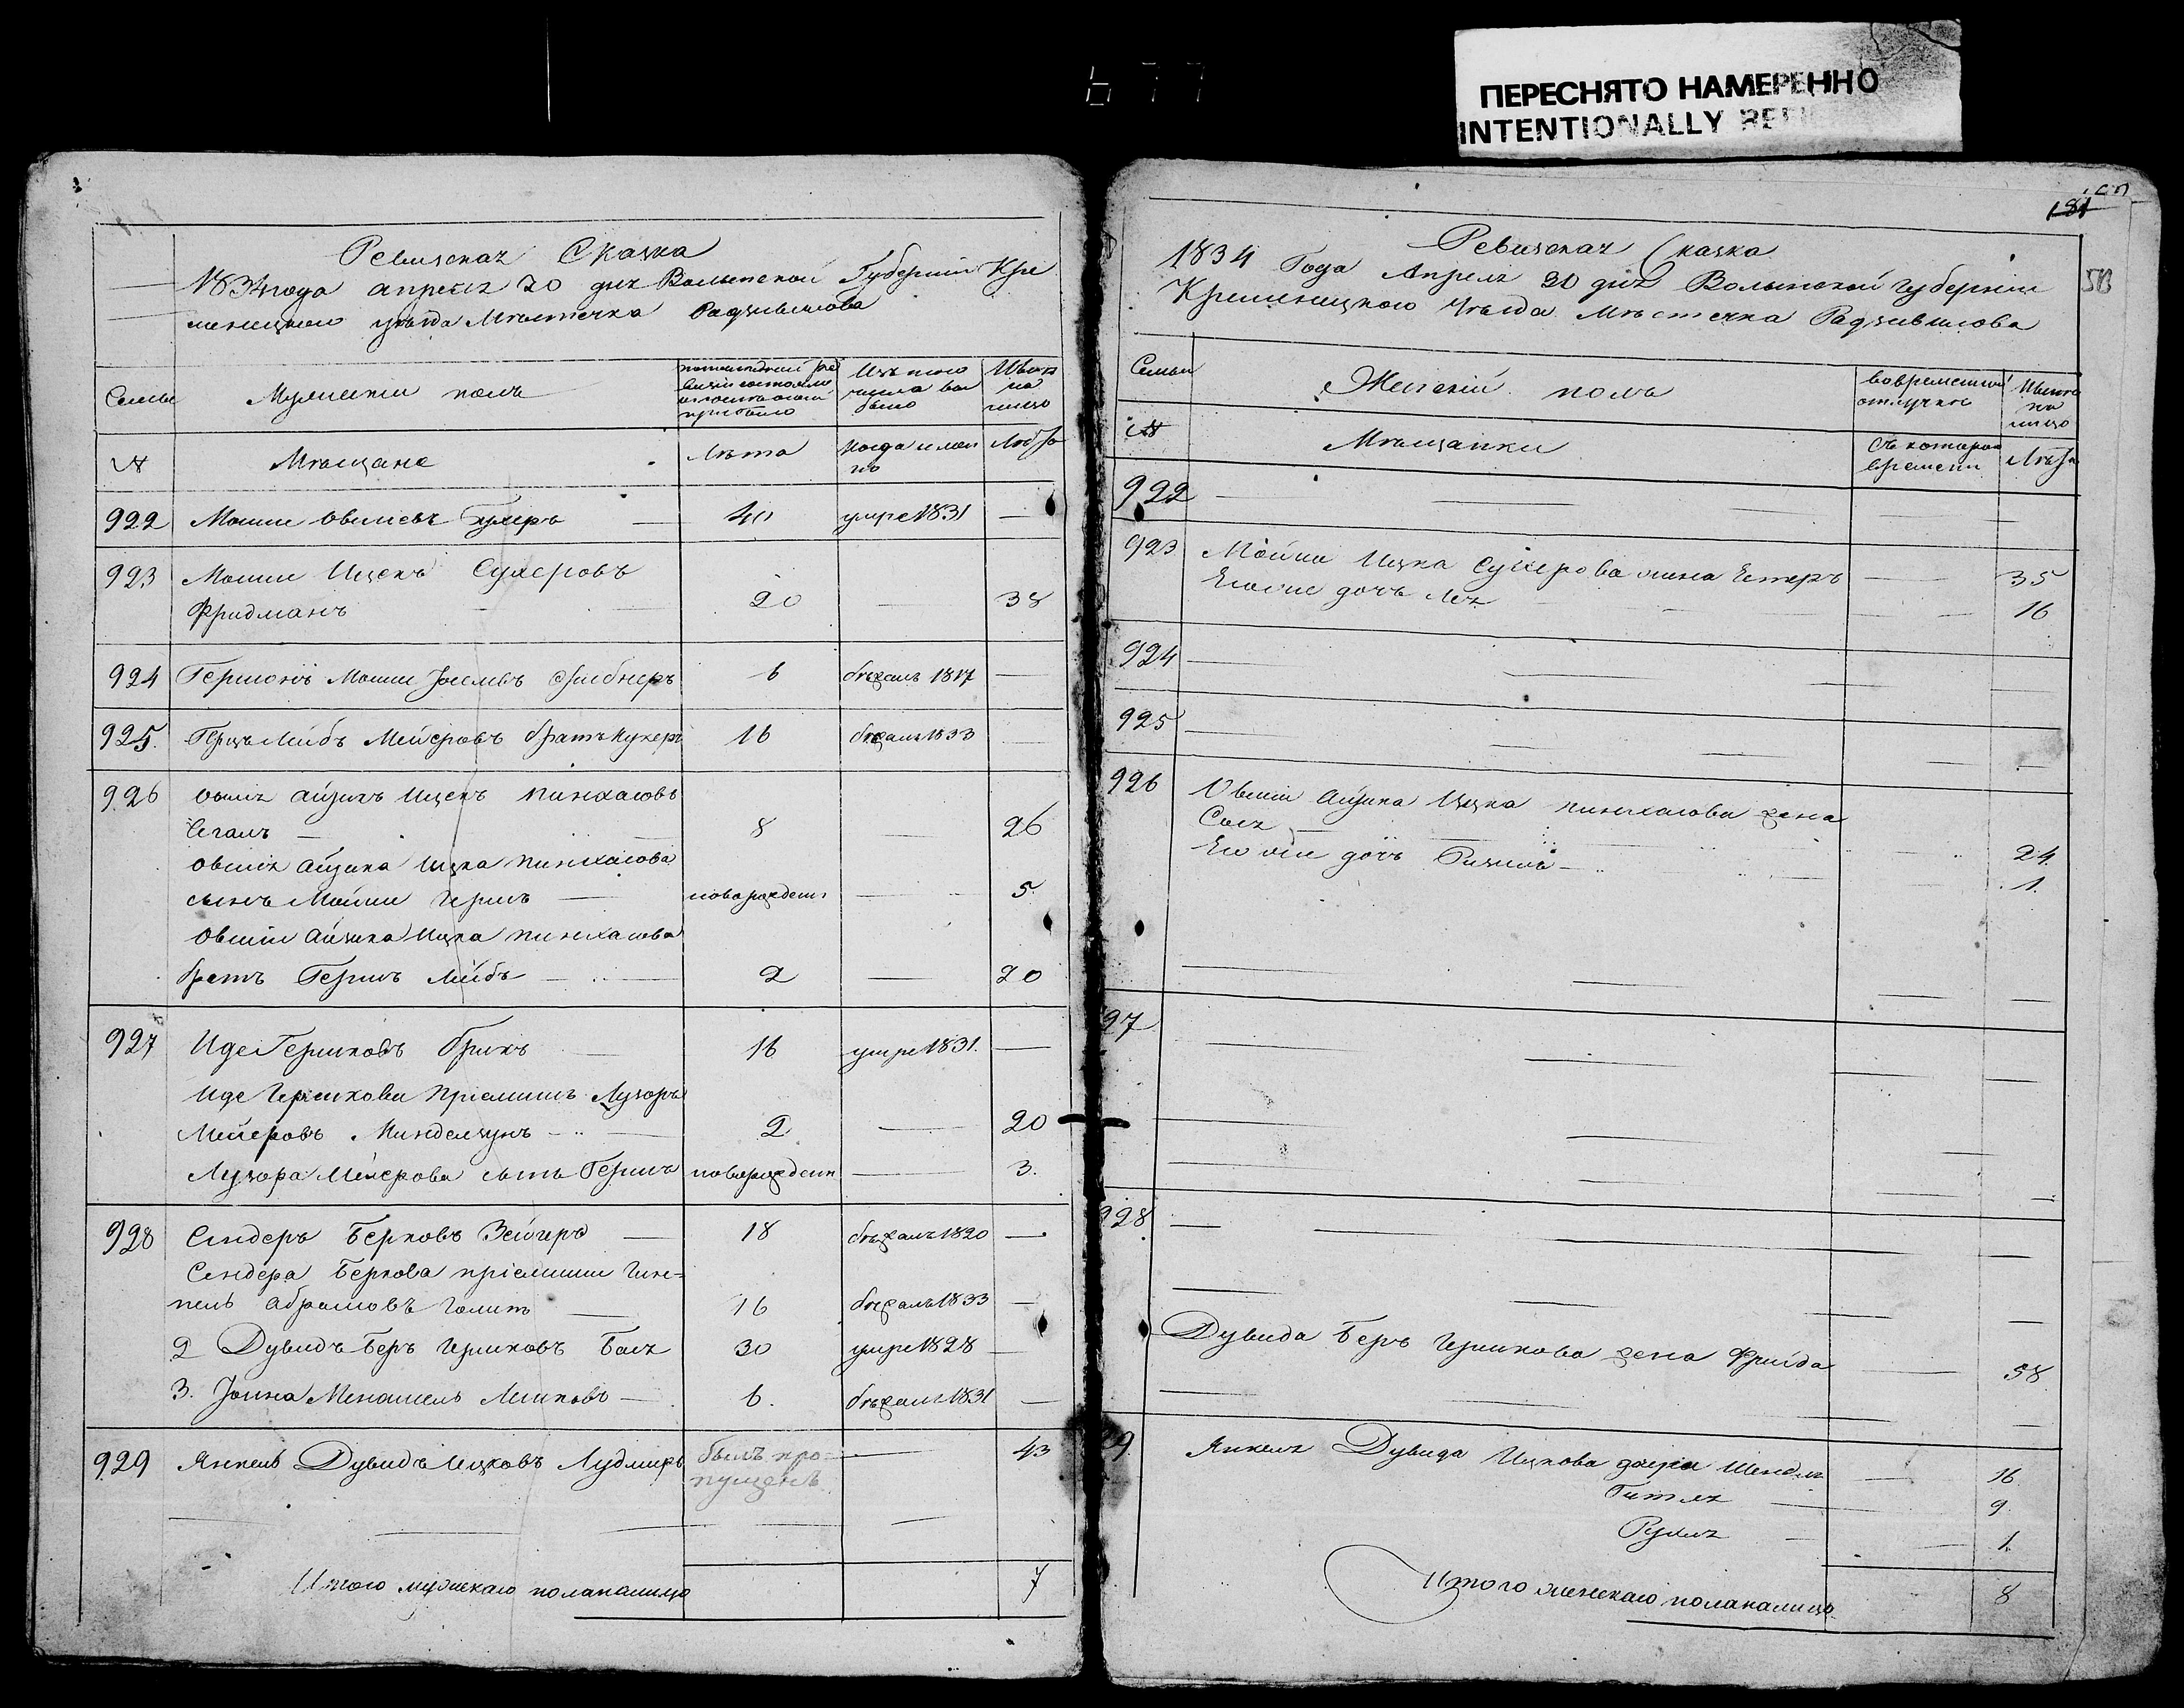 677
ПЕРЕСНЯТО НАМЕРЕННО
INTENTIONALLY
Ревизская Сказка
1834 года апреля 20 дня Волынской Губернии Кре
менецкаго уезда Местечка Радзивилова
Семьи
Мужеский полъ
Изъ того
числа вы
было
Ныне
на
лицо
№
Мещане
Лета
Когда имен
но
Лета
922 Мошко Овшиевъ — 40 умре 1831 —
923 Мошко Ицекъ Сухеровъ
Фридманъ 20 — 38
924 Гершонъ Мошко 6 бежалъ 1817 —
925. Герцъ Лейбъ Мейеровъ братъ Кухеръ 16 бежалъ 1833 —
926 Овшия Айзикъ Ицекъ Пинхасовъ
Сегалъ — 8 — 26
Овшия Айзика Ицка Пинхасова
сынъ Мошко Гершъ — новорожден — 5
Овшия Айзика Ицка Пинхасова
братъ Гершъ Лейбъ — 2 — 20
927 Иде Гершковъ Брикъ — 16 умре 1831. —
Иде Гершкови Приемышъ Лузоръ
Мейеровъ — 2 — 20
Лузора Мейерова сынъ Гершъ новорожден — 3.
928 Сендеръ Берковъ Зейгеръ — 18 бежалъ 1820 —
Сендера Беркова приемыши Гим-
пель Абрамовъ — 16 бежалъ 1833 —
2 Дувидъ Беръ Гершковъ Басъ 30 умре 1828 —
3. Иона Менашель — 6. бежалъ 1831 —
929 Янкель Дувидъ Ицковъ Лудмиръ былъ про- — 43
пущенъ
Итого мужескаго пола налицо 7
181
513
Ревизская Сказка
1834 Года Апреля 20 дня Волынской губернии
Кременецкаго Уезда Местечка Радзивилова
Семьи
Женский полъ
во временной
отлучке
Ныне
на
лицо
№
Мещанки
Съ котораго
времени
Лета
922
923 Мошка Ицка Сухерова жена Естеръ — 35
Его же дочь Лея — 16
924
925
926 Овшии Айзика Ицка Пинхасова жена
Сося — 24
Его же дочь — 1
27
928
Дувида Беръ Гершкова жена Фрейда — 58
29 Янкеля Дувида Ицкова дочери Шендля — 16
Гитля — 9.
Рухля — 1.
Итого женскаго пола налицо 8